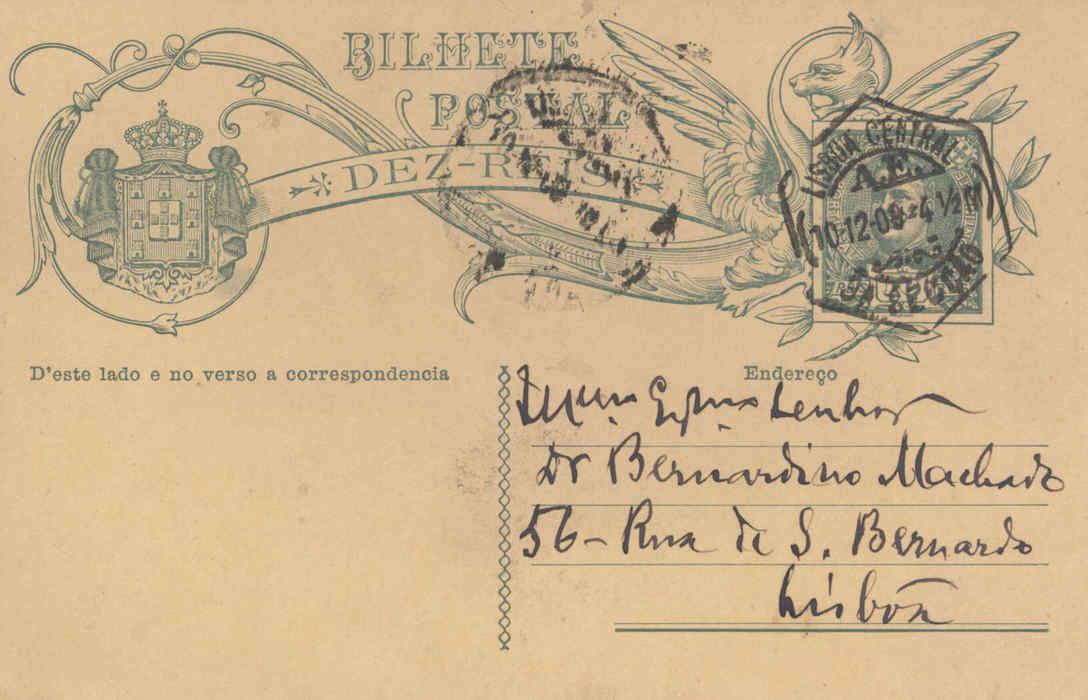 BILHETE
POSTAL
DEZ-REIS
LISBOA CENTRAL
A.E.
10-12-09 4 1/2 M
SECÇÃO
D'este lado e no verso a correspondencia
Endereço
Illmo. Exmo. Senhor
Dr Bernardino Machado
56 - Rua de S. Bernardo
Lisbôa